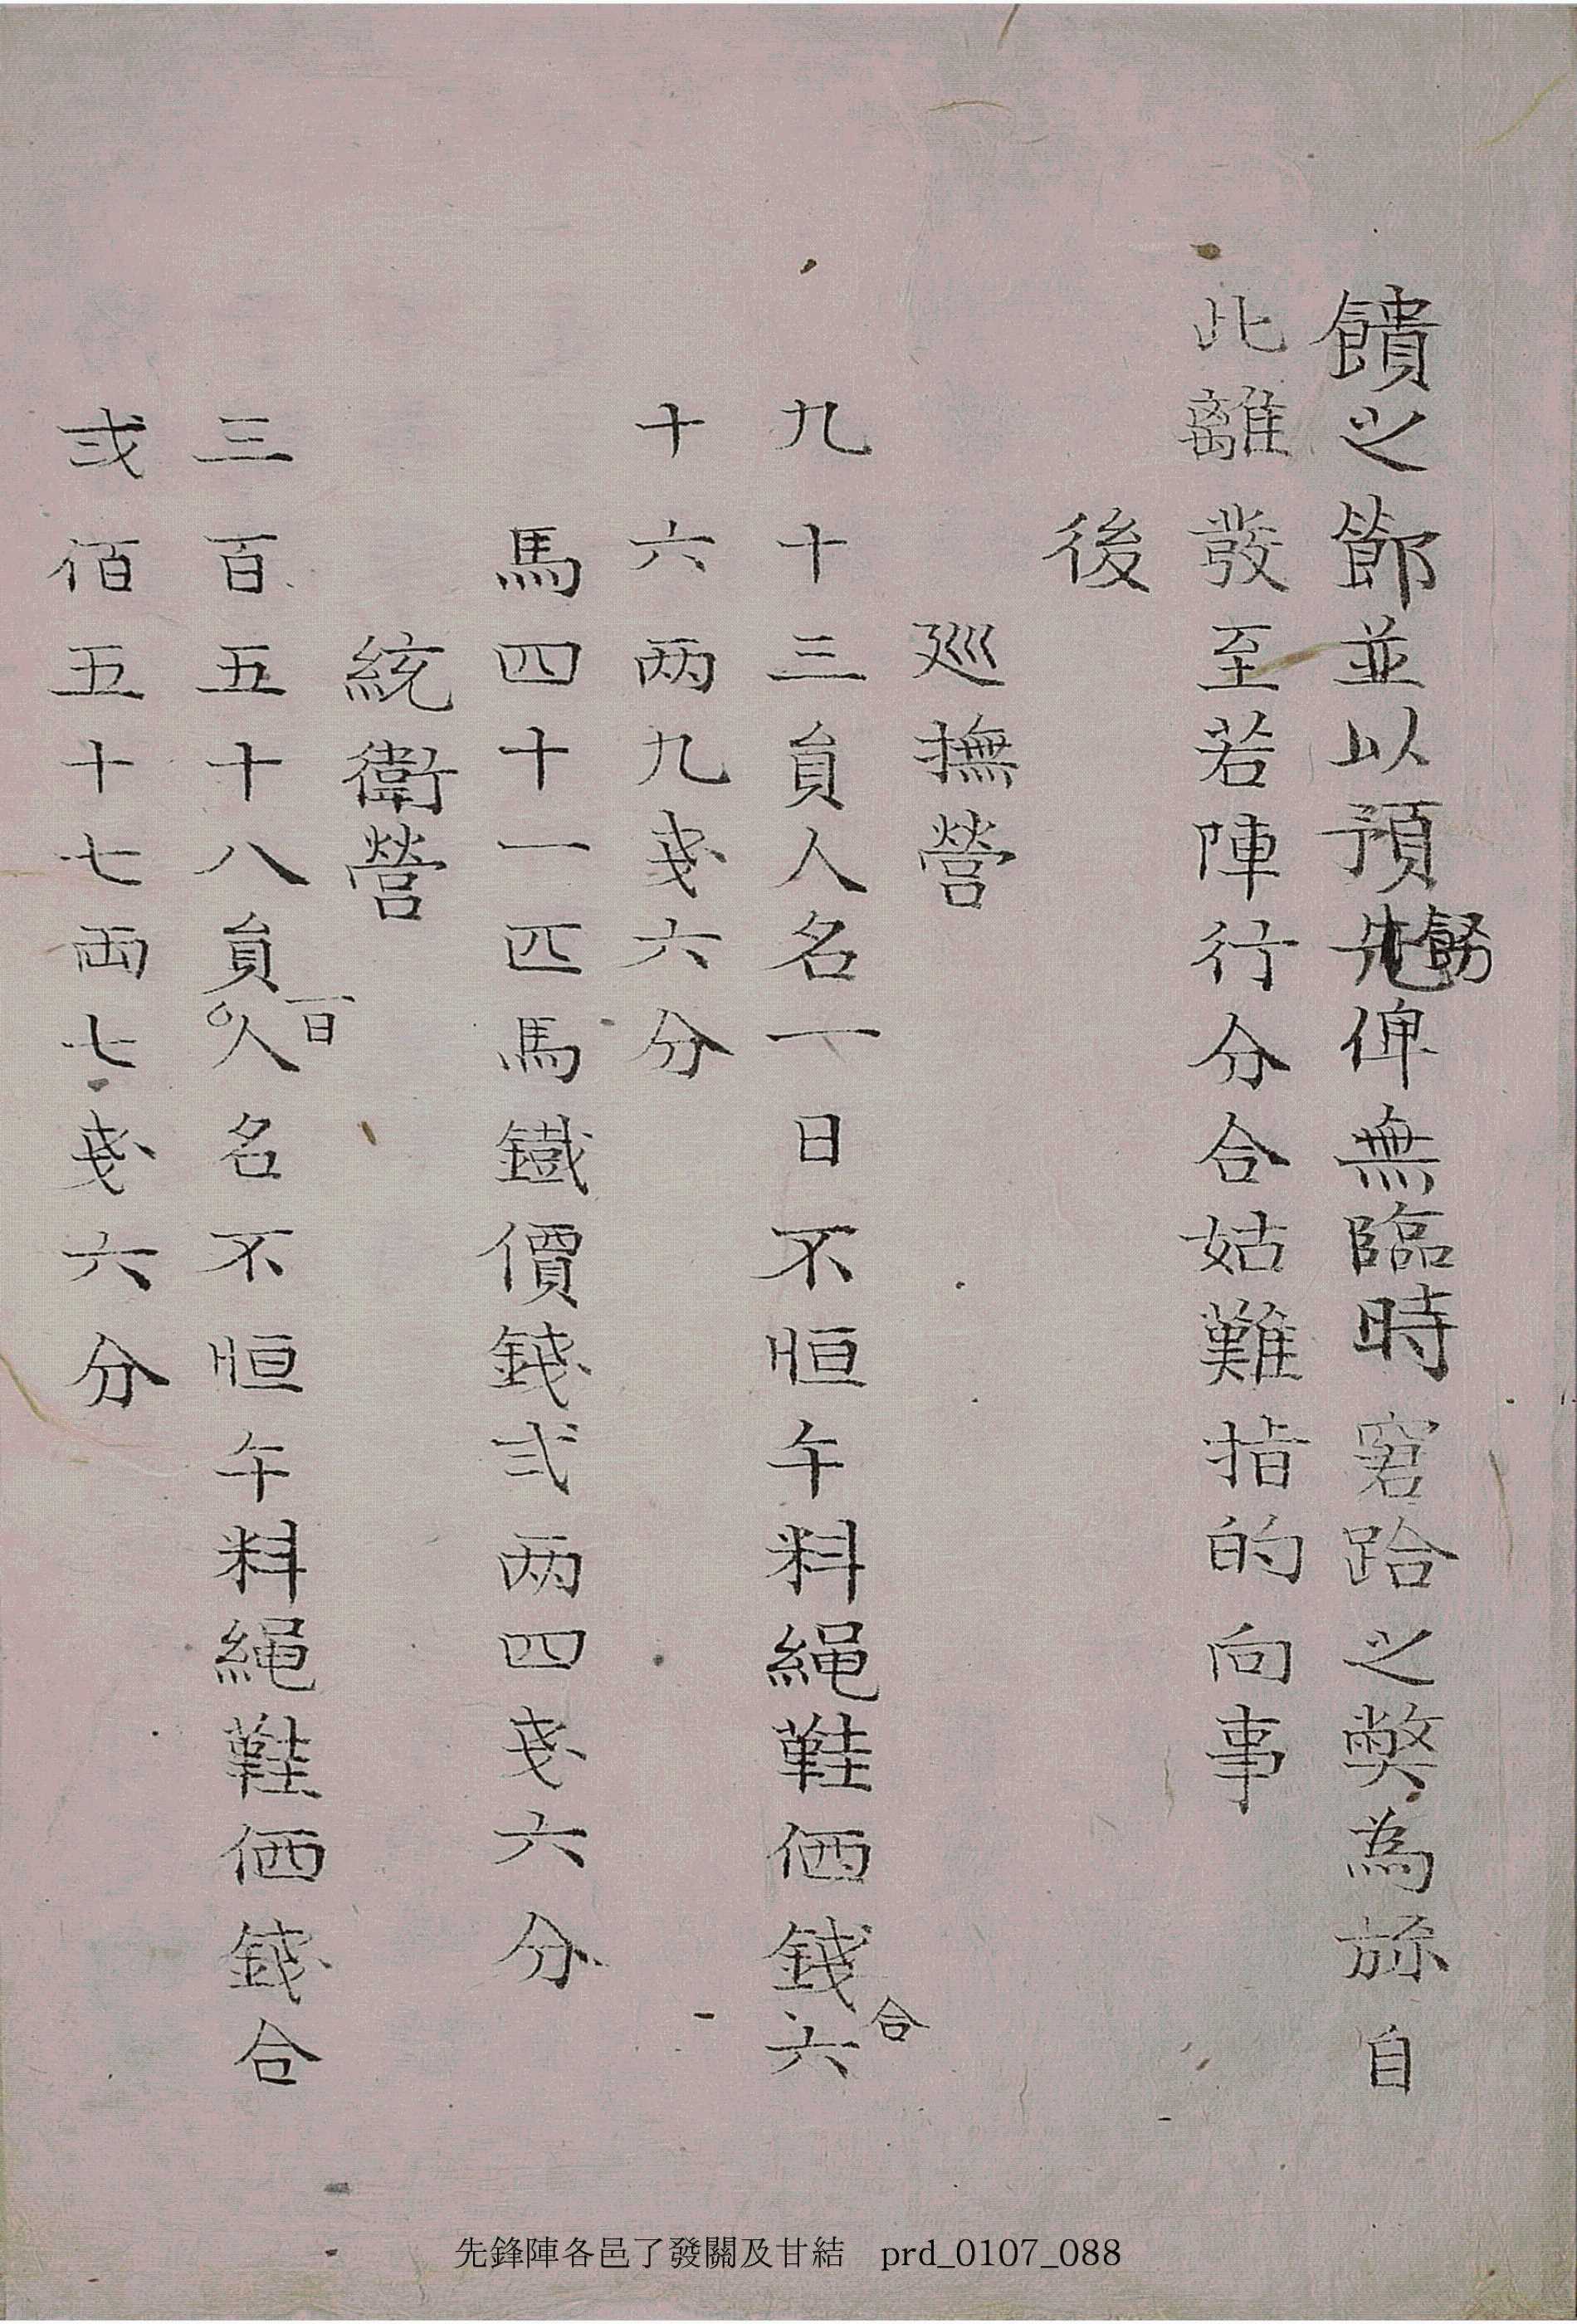 饋之節並以預先飭俾無臨時窘跲之弊為旀自
此離發至若陣行分合姑難指的向事
後
廵撫營
九十三員人名一日不恒午料繩鞋価錢合六
十六两九戔六分
馬四十一匹馬鐵價錢弍两四戔六分
統衛營
三百五十八員人名一日不恒午料繩鞋価錢合
弍佰五十七両七戔六分
先鋒陣各邑了發關及甘結 prd_0107_088